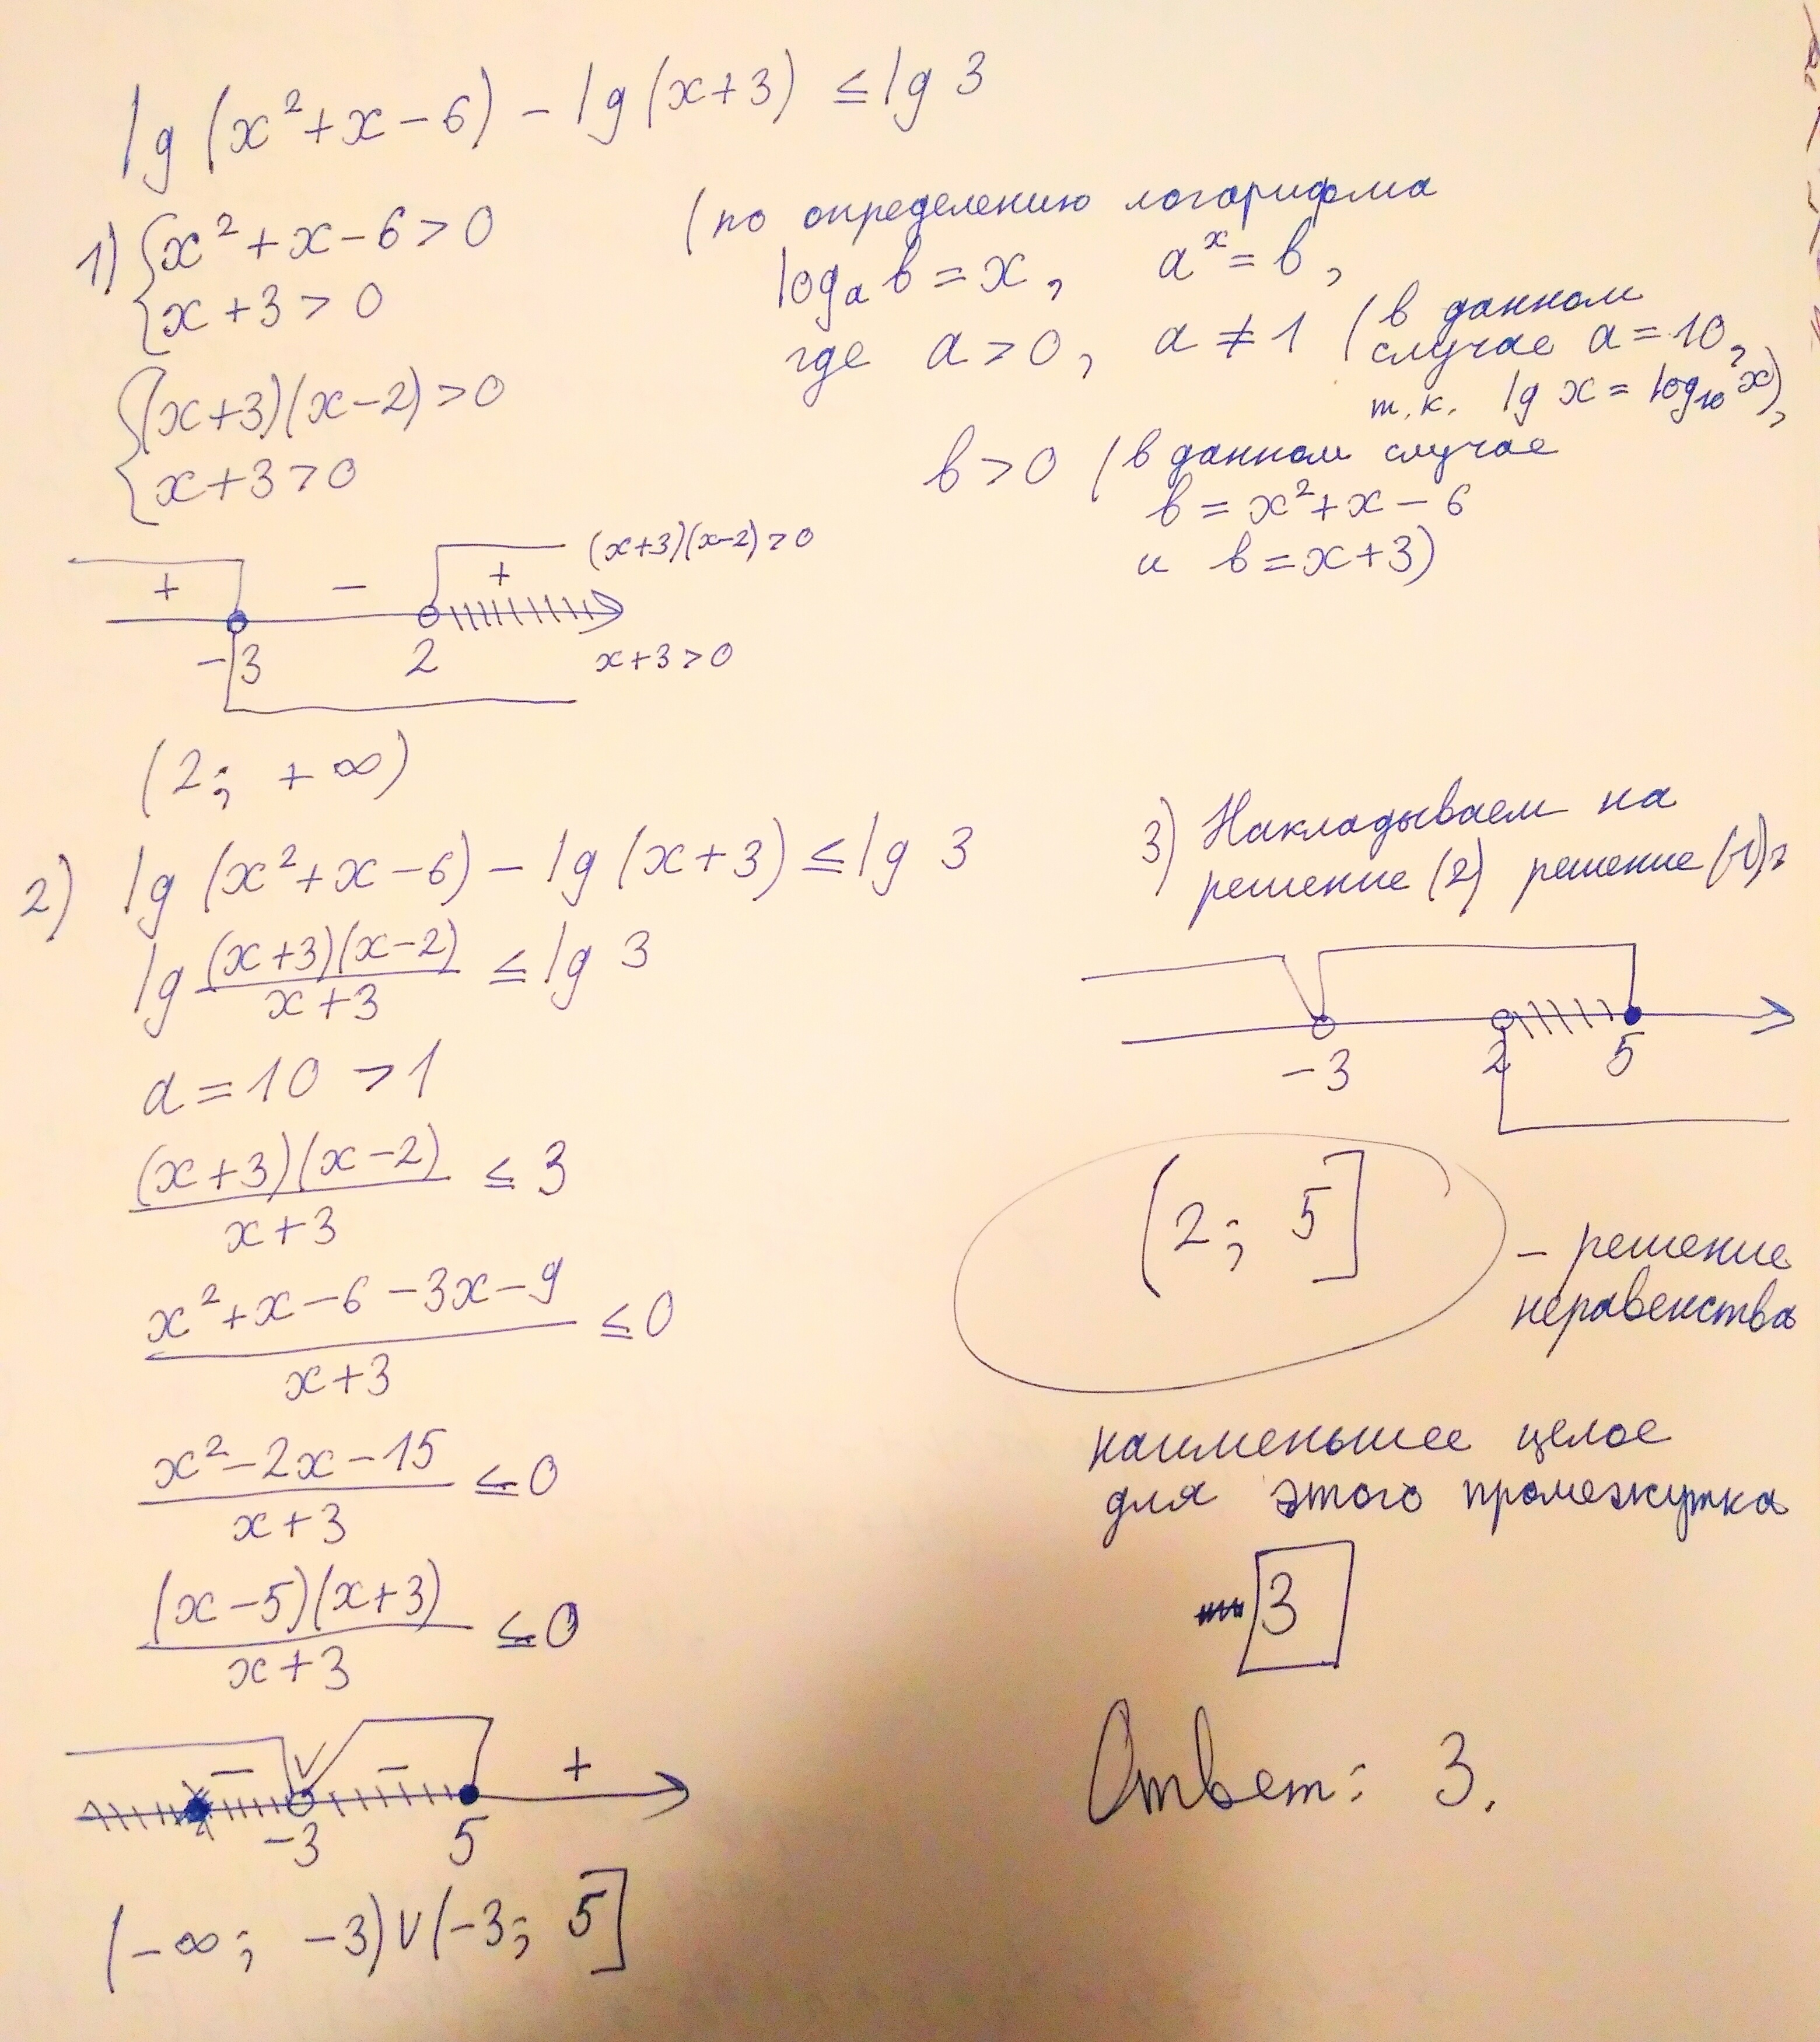 lg (x²+x-6) - lg (x+3) ≤ lg 3
1) { x²+x-6>0
{ x+3>0
{ (x+3)(x-2)>0
{ x+3>0
(по определению логарифма
logₐ b = x, aˣ = b,
где a>0, a≠1 (в данном
случае a=10,
т.к. lg x = log₁₀ x),
b>0 (в данном случае
b = x²+x-6
и b=x+3)
(x+3)(x-2)>0
+ - +
-3 2
x+3>0
(2; +∞)
2) lg (x²+x-6) - lg (x+3) ≤ lg 3
lg (x+3)(x-2)/(x+3) ≤ lg 3
a=10 >1
(x+3)(x-2)/(x+3) ≤ 3
(x²+x-6-3x-9)/(x+3) ≤ 0
(x²-2x-15)/(x+3) ≤ 0
(x-5)(x+3)/(x+3) ≤ 0
- V - +
-3 5
(-∞; -3)∨(-3; 5]
3) Накладываем на
решение (2) решение (1):
-3 2 5
(2; 5]
- решение
неравенства
наименьшее целое
для этого промежутка
3
Ответ: 3.